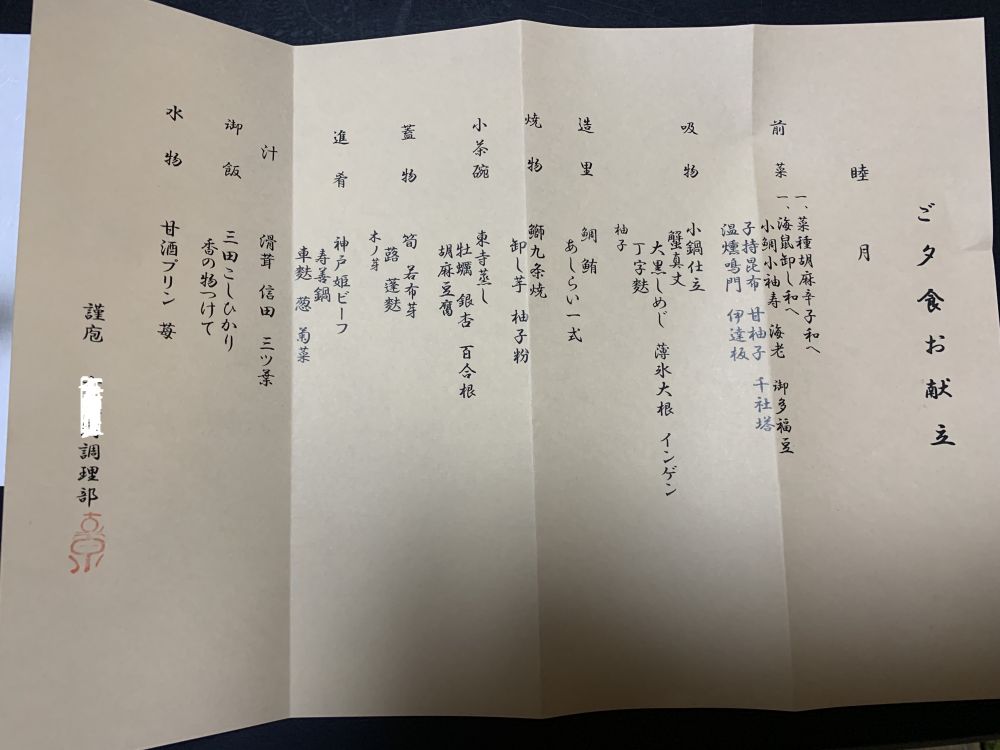 ご夕食お献立
睦月
前菜
一、菜種胡麻辛子和へ
一、海鼠卸し和へ
小鯛小袖寿 海老 御多福豆
子持昆布 甘柚子 千社塔
温燻鳴門 伊達板
吸物
小鍋仕立
蟹真丈
大黒しめじ 薄氷大根 インゲン
丁字麩
柚子
造里
鯛 鮪
あしらい一式
焼物
鰤九条焼
卸し芋 柚子粉
小茶碗
東寺蒸し
牡蠣 銀杏 百合根
胡麻豆腐
蓋物
筍 若布芽
蕗 蓬麩
木ノ芽
進肴
神戸姫ビーフ
寿善鍋
車麩 葱 菊菜
汁
滑茸 信田 三ツ葉
御飯
三田こしひかり
香の物つけて
水物
甘酒プリン 苺
謹庖
調理部